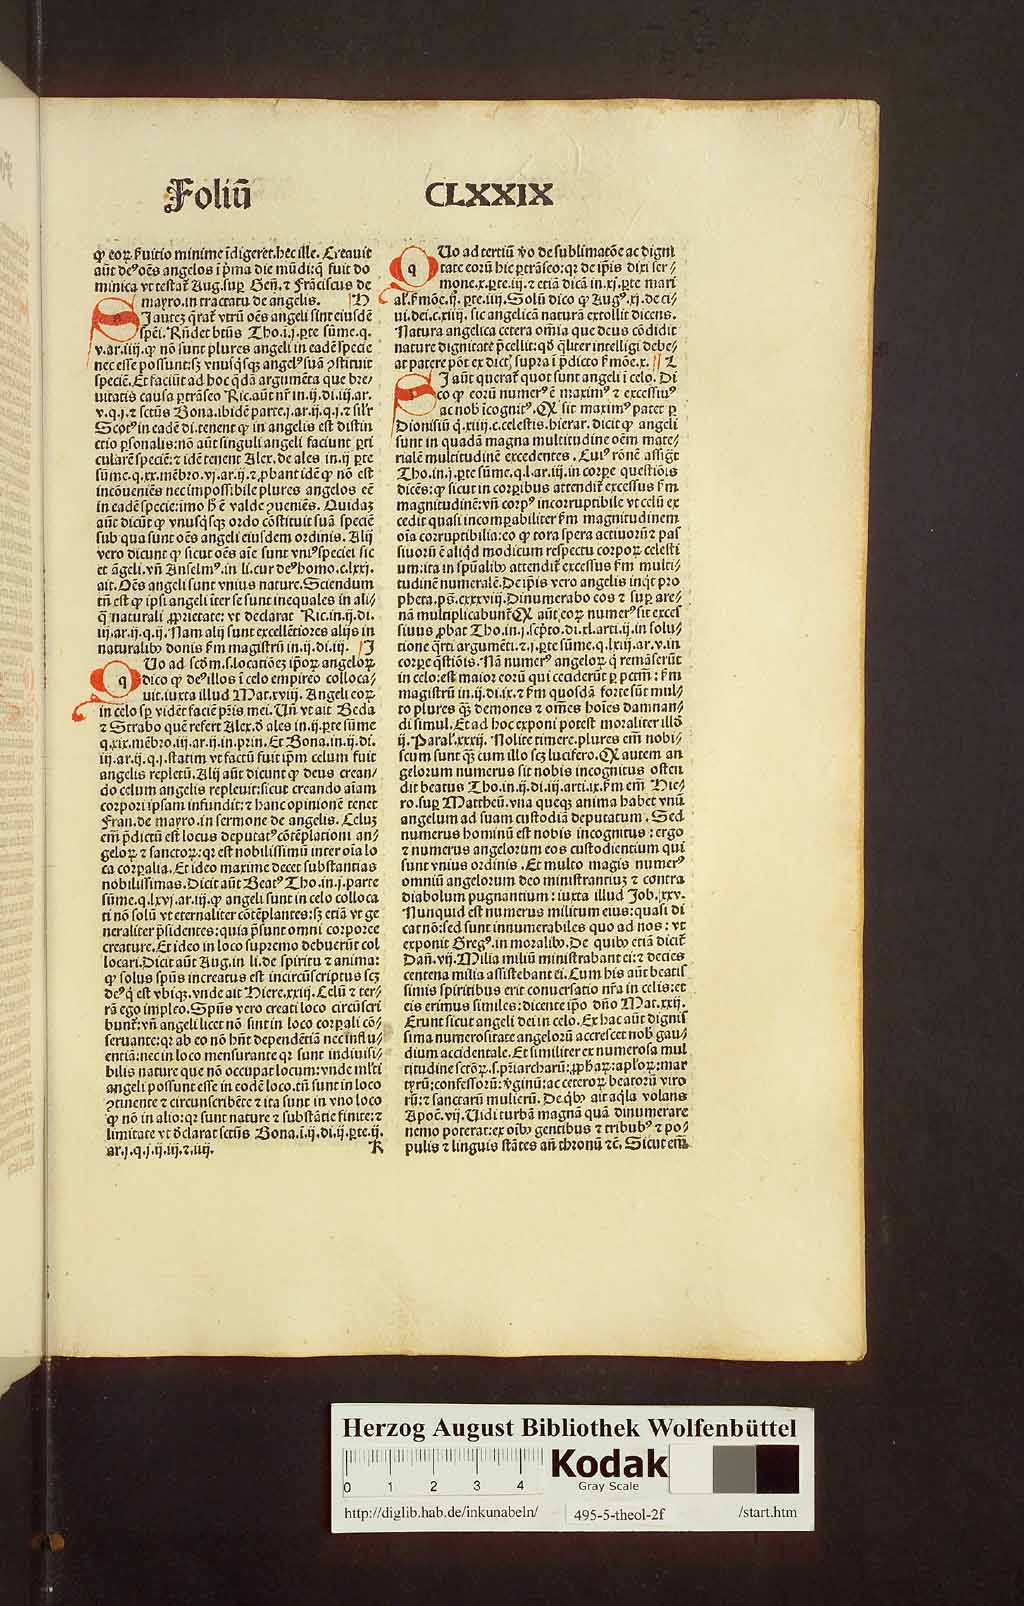 Foliū CLXXIX
ꝙ eoꝝ ẜuitio minime īdigeret. hec ille. Creauit
aūt deꝰ oēs angelos ī pͥma die mūdi: q̄ fuit do
minica vt testať Aug. suꝑ Geñ. ⁊ Frāciscus de
mayro. in tractatu de angelis. H
SI autez q̄raƭ vtrū oēs angeli sint eiusdē
spēi. Rñdet btūs Tho. i. j. ꝑte sūme. q.
v. ar. iiij. ꝙ nō sunt plures angeli in eadē specie
nec esse possunt: sꝫ vnusq̄sqꝫ angelꝰ suā ꝯstituit
speciē. Et faciūt ad hoc q̄dā argumēta que bre/
uitatis causa ꝑtrāseo Ric. aūt nr̄ in. ij. di. iij. ar.
v. q. j. ⁊ sctūs Bona. ibidē parte. j. ar. ij. q. j. ⁊ silr̄
Scotꝰ in eadē di. tenent ꝙ in angelis est distin
ctio ꝑsonalis: nō aūt singuli angeli faciunt ꝑti
cularē speciē: ⁊ idē tenent Alex. de ales in. ij ꝑte
sūme. q. xx. mēbro. vj. ar. ij. ⁊ ꝓbant idē ꝙ nō est
incōueniēs nec impossibile plures angelos eē
in eadē specie: imo h̄ ē valde ꝯueniēs. Quidaꝫ
aūt dicūt ꝙ vnusq̄sqꝫ ordo cōstituit suā speciē
sub qua sunt oēs angeli eiusdem ordinis. Alij
vero dicunt ꝙ sicut oēs aīe sunt vniꝰ speciei sic
et āgeli. vñ Anselmꝰ. in li. cur deꝰ homo. c. lxxj.
ait. Oēs angeli sunt vnius nature. Sciendum
tñ est ꝙ ipsi angeli īter se sunt inequales in ali/
q̄ naturali ꝓprietate: vt declarat Ric. in. ij. di.
iij. ar. ij. q. ij. Nam alij sunt excellētiores alijs in
naturalibꝰ donis ẜm magistrū in. ij. di. iij. I
QUo ad scōm. s. locationeꝫ ipͦoꝝ angeloꝝ
dico ꝙ deꝰ illos ī celo empireo colloca/
uit. iuxta illud Mat. xviij. Angeli eoꝝ
in celo sꝑ vidēt faciē pr̄is mei. Uñ vt ait Beda
⁊ Strabo quē refert Alex. ð ales in. ij. ꝑte sūme
q. xix. mēbro. iij. ar. ij. in. prin. Et Bona. in. ij. di.
iij. ar. ij. q. j. statim vt factū fuit ip̄m celum fuit
angelis repletū. Alij aūt dicunt ꝙ deus crean/
do celum angelis repleuit: sicut creando aīam
corpori ipsam infundit: ⁊ hanc opinionē tenet
Fran. de mayro. in sermone de angelis. Celuꝫ
em̄ p̄dictū est locus deputatꝰ cōtēplationi an/
geloꝝ ⁊ sanctoꝝ: qꝛ est nobilissimū inter oīa lo
ca corꝑalia. Et ideo maxime decet substantias
nobilissimas. Dicit aūt Beatꝰ Tho. in. j. parte
sūme. q. lxvj. ar. iij. ꝙ angeli sunt in celo colloca
ti nō solū vt eternaliter cōtēplantes: sꝫ etiā vt ge
neraliter p̄sidentes: quia p̄sunt omni corporee
creature. Et ideo in loco supremo debuerūt col
locari. Dicit aūt Aug. in li. de spiritu ⁊ anima:
ꝙ solus spūs increatus est incircūscriptus scꝫ
deꝰ q̄ est vbiqꝫ. vnde ait Hiere. xxiij. Celū ⁊ ter/
rā ego impleo. Spūs vero creati loco circūscri
bunt̄: vñ angeli licet nō sint in loco corꝑali cō/
seruante: qꝛ ab eo nō hñt dependētiā nec influ/
entiā: nec in loco mensurante qꝛ sunt indiuisi/
bilis nature que nō occupat locum: vnde ml̄ti
angeli possunt esse in eodē loco. tñ sunt in loco
ꝯtinente ⁊ circunscribēte ⁊ ita sunt in vno loco
ꝙ nō in alio: qꝛ sunt nature ⁊ substātie finite: ⁊
limitate vt ðclarat sctūs Bona. ī. ij. di. ij. ꝑte. ij.
ar. j. q. j. ij. iij. ⁊. iiij. K
QUo ad tertiū ꝟo de sublimatōe ac digni
tate eorū hic ꝑtrāseo: qꝛ de ip̄is dixi ser/
mone. x. ꝑte. iij. ⁊ etiā dicā in. xj. ꝑte mari
al̄. ẜmōe. ij. ꝑte. iiij. Solū dico ꝙ Augꝰ. xj. de ci/
ui. dei. c. xiiij. sic angelicā naturā extollit dicens.
Natura angelica cetera om̄ia que deus cōdidit
nature dignitate p̄cellit: qð q̄liter intelligi debe/
at patere pōt ex dictꝭ supra ī p̄dicto ẜmōe. x. L
SI aūt queraƭ quot sunt angeli ī celo. Di
co ꝙ eorū numerꝰ ē maximꝰ ⁊ excessiuꝰ
ac nob̄ īcognitꝰ. Q sit maximꝰ patet ꝑ
Dionisiū q̄. xiiij. c. celestis. hierar. dicit ꝙ angeli
sunt in quadā magna multitudine oēm mate/
rialē multitudinē excedentes. Cuiꝰ rōnē assigt̄
Tho. in. j. ꝑte sūme. q. l. ar. iij. in corꝑe questiōis
dicēs: ꝙ sicut in corꝑibus attendit̄ excessus ẜm
magnitudinē: vñ corpꝰ incorruptibile vt celū ex
cedit quasi incomꝑabiliter ẜm magnitudinem
oīa corruptibilia: eo ꝙ tota spera actiuorū ⁊ pas
siuorū ē aliqd̄ modicum respectu corpoꝝ celesti
um: ita in spūalibꝰ attendit̄ excessus ẜm multi/
tudinē numeralē. De ip̄is vero angelis inq̄t pro
pheta. ps̄. cxxxviij. Dinumerabo eos ⁊ suꝑ are/
nā multiplicabunt̄ Q aūt eoꝝ numerꝰ sit exces
siuus ꝓbat Tho. in. j. scp̄to. di. xl. arti. ij. in solu/
tione q̄rti argumēti. ⁊. j. ꝑte sūme. q. lxiij. ar. v. in
corꝑe q̄stiōis. Nā numerꝰ angeloꝝ q̄ remāserūt
in celo: est maior eorū qui ceciderūt ꝑ pctm̄: ẜm
magistrū in. ij. di. ix. ⁊ ẜm quosdā forte sūt mul/
to plures q̄ꝫ demones ⁊ om̄es hoīes damnan/
di simul. Et ad hoc exponi potest moraliter illð
ij. Paral. xxxij. Nolite timere. plures em̄ nobi/
scum sunt q̄ꝫ cum illo scꝫ lucifero. Q autem an
gelorum numerus sit nobis incognitus osten
dit beatus Tho. in. ij. di. iij. arti. ix. ẜm em̄ Hie/
ro. suꝑ Mattheū. vna queqꝫ anima habet vnū
angelum ad suam custodiā deputatum. Sed
numerus hominū est nobis incognitus: ergo
⁊ numerus angelorum eos custodientium qui
sunt vnius ordinis. Et multo magis numerꝰ
omniū angelorum deo ministrantiuꝫ ⁊ contra
diabolum pugnantium: iuxta illud Job. xxv.
Nunquid est numerus militum eius: quasi di
cat nō: sed sunt innumerabiles quo ad nos: vt
exponit Gregꝰ. in moralibꝰ. De quibꝰ etiā dicit̄
Dañ. vij. Milia miliū ministrabant ei: ⁊ decies
centena milia assistebant ei. Cum his aūt beatis
simis spiritibus erit conuersatio nr̄a in celis: et
eis erimus similes: dicente ip̄o dn̄o Mat. xxij.
Erunt sicut angeli dei in celo. Ex hac aūt dignis
sima numerositate angelorū accrescet nob̄ gau/
dium accidentale. Et similiter ex numerosa mul
titudine sctōꝝ. s. pr̄iarcharū: ꝓphaꝝ: apl̄oꝝ: mar
tyrū: confessorū: ꝟginū: ac ceteroꝝ beatorū viro
rū: ⁊ sanctarū mulierū. De q̄bꝰ ait aq̄la volans
Apoc̄. vij. Uidi turbā magnā quā dinumerare
nemo poterat: ex oībꝰ gentibus ⁊ tribubꝰ ⁊ po/
pulis ⁊ linguis stātes añ thronū ⁊c̄. Sicut em̄
Herzog August Bibliothek Wolfenbüttel
0 1 2 3 4
Kodak
Gray Scale
http://diglib.hab.de/inkunabeln/ 495-5-theol-2f /start.htm